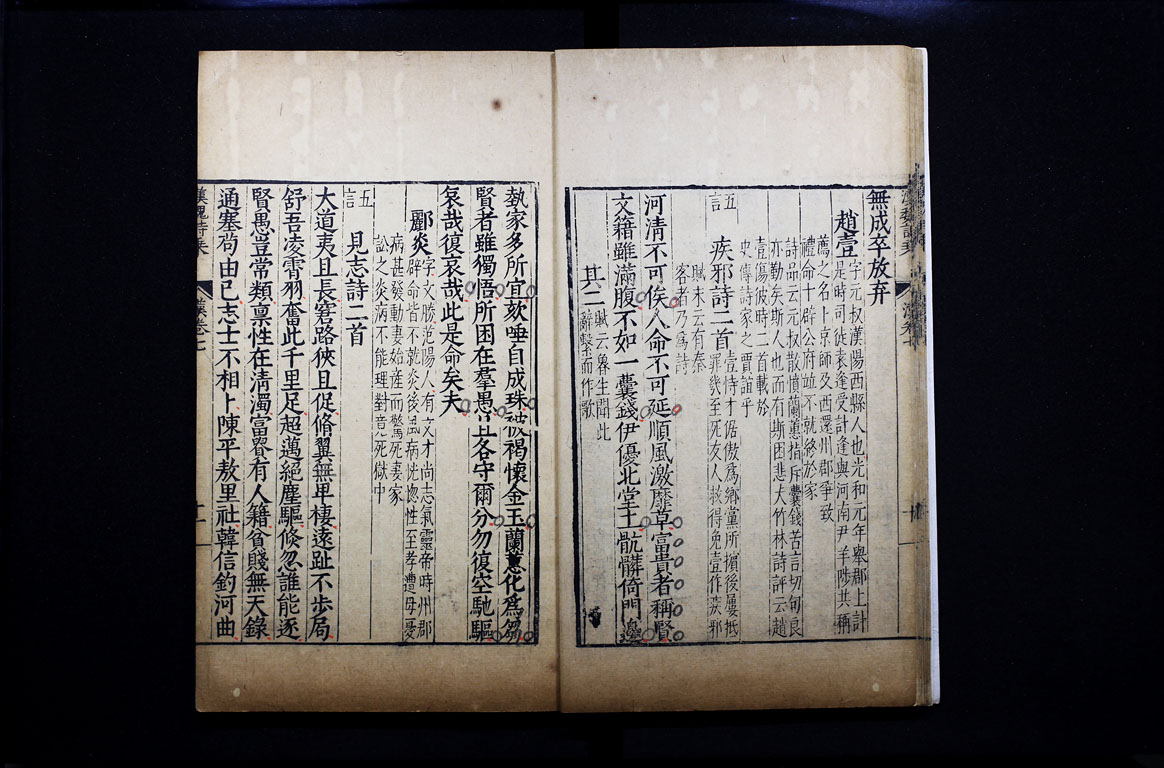 無成卒放弃
趙壹
字元叔漢陽西縣人也光和元年舉郡上計
是時司徒袁逢受計逢與河南尹羊陟共稱
薦之名上京師及西還州郡爭致
禮命十辟公府竝不就終於家
詩品云元叔散憤蘭蕙指斥囊錢苦言切句良
亦勤矣斯人也而有斯困悲大竹林詩評云趙
壹傷彼時二首載於
史傳詩家之賈誼乎
五言
疾邪詩二首
壹恃才倨傲爲鄉黨所擯後屢抵
罪幾至死友人救得免壹作疾邪
賦末云有秦
客者乃爲詩
河清不可俟人命不可延順風激靡草富貴者稱賢
文籍雖滿腹不如一囊錢伊優北堂上骯髒倚門邊
其二
賦云魯生聞此
辭繫而作歌
埶家多所宜欬唾自成珠被褐懷金玉蘭蕙化爲芻
賢者雖獨悟所困在羣愚且各守爾分勿復空馳驅
哀哉復哀哉此是命矣夫
酈炎
字文勝范陽人有文才尚志氣靈帝時州郡
辟命皆不就炎後風病恍惚性至孝遭母憂
病甚發動妻始產而驚死妻家
訟之炎病不能理對竟死獄中
五言
見志詩二首
大道夷且長窘路狹且促脩翼無卑棲遠趾不步局
舒吾凌霄羽奮此千里足超邁絕塵驅倏忽誰能逐
賢愚豈常類稟性在清濁富貴有人籍貧賤無天錄
通塞苟由己志士不相卜陳平敖里社韓信釣河曲
漢魏詩乘
漢卷七